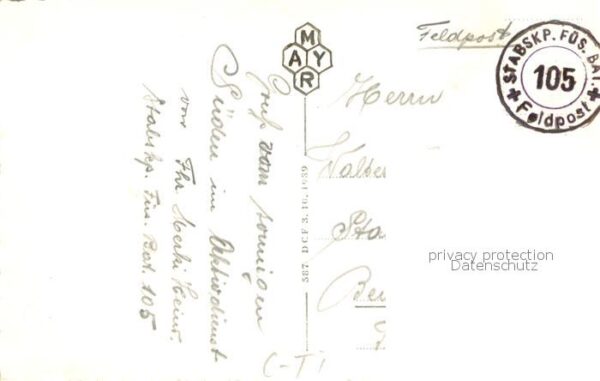 Gruss vom sonnigen
Süden im Aktivdienst
von Ihr
Stabskp. Füs. Bat. 105
MAYR
587 DCF 3.10.1939
Feldpost
STABSKP. FÜS. BAT.
105
* Feldpost *
Herrn
Walter
Sta
Ber
privacy protection
Datenschutz
C-TI